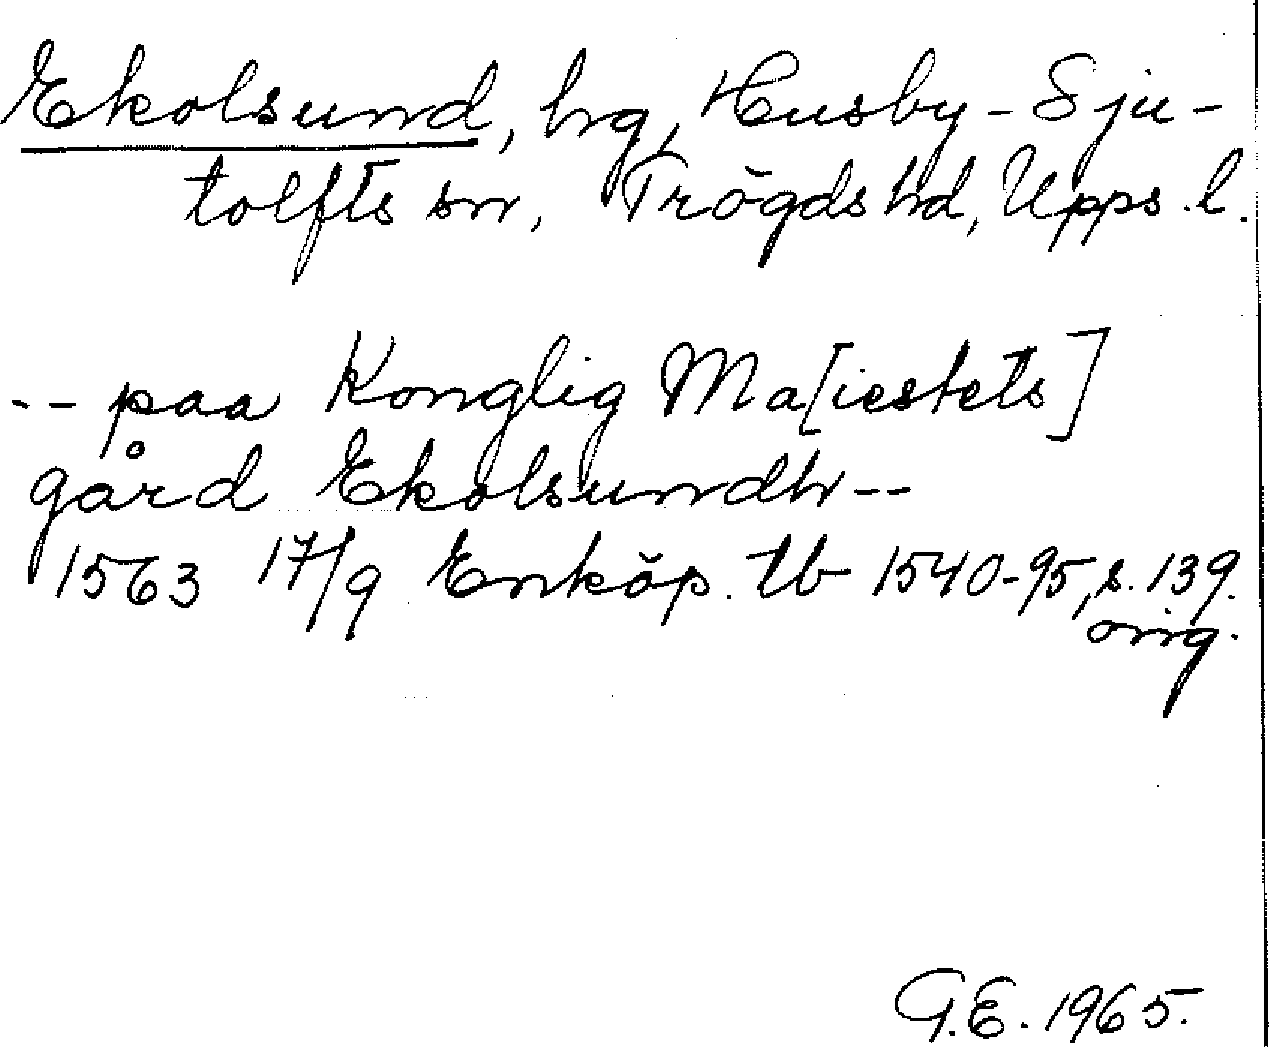 Ekolsund, hg, Husby-Sju-
tolfts sn, Trögds hd, Upps. l.
-- paa Konglig Ma[iestets]
gård Ekolsundh--
1563 17/9 Enköp. tb 1540-95, s. 139.
orig.
G.E. 1965.